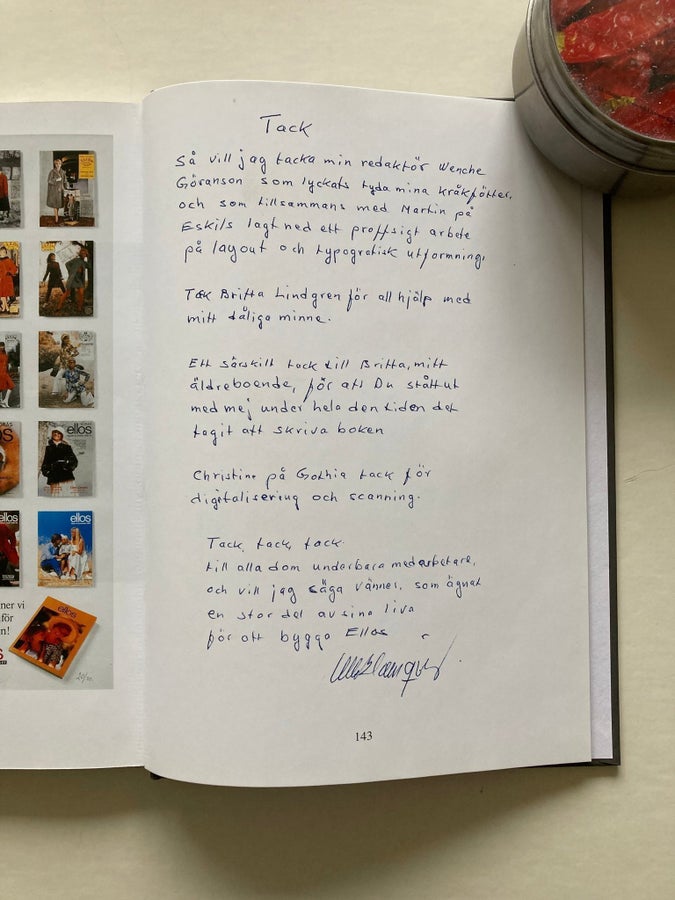 ellos
ellos
ner vi
för
n!
ellos
Tack
Så vill jag tacka min redaktör Wenche
Göranson som lyckats tyda mina kråkfötter,
och som tillsammans med Martin på
Eskils lagt ned ett proffsigt arbete
på layout och typografisk utformning.
Tack Britta Lindgren för all hjälp med
mitt dåliga minne.
Ett särskilt tack till Britta, mitt
äldreboende, för att Du stått ut
med mej under hela den tiden det
tagit att skriva boken
Christine på Gothia tack för
digitalisering och scanning.
Tack, tack, tack
till alla dom underbara medarbetare,
och vill jag säga vänner, som ägnat
en stor del av sina liva
för att bygga Ellos
143